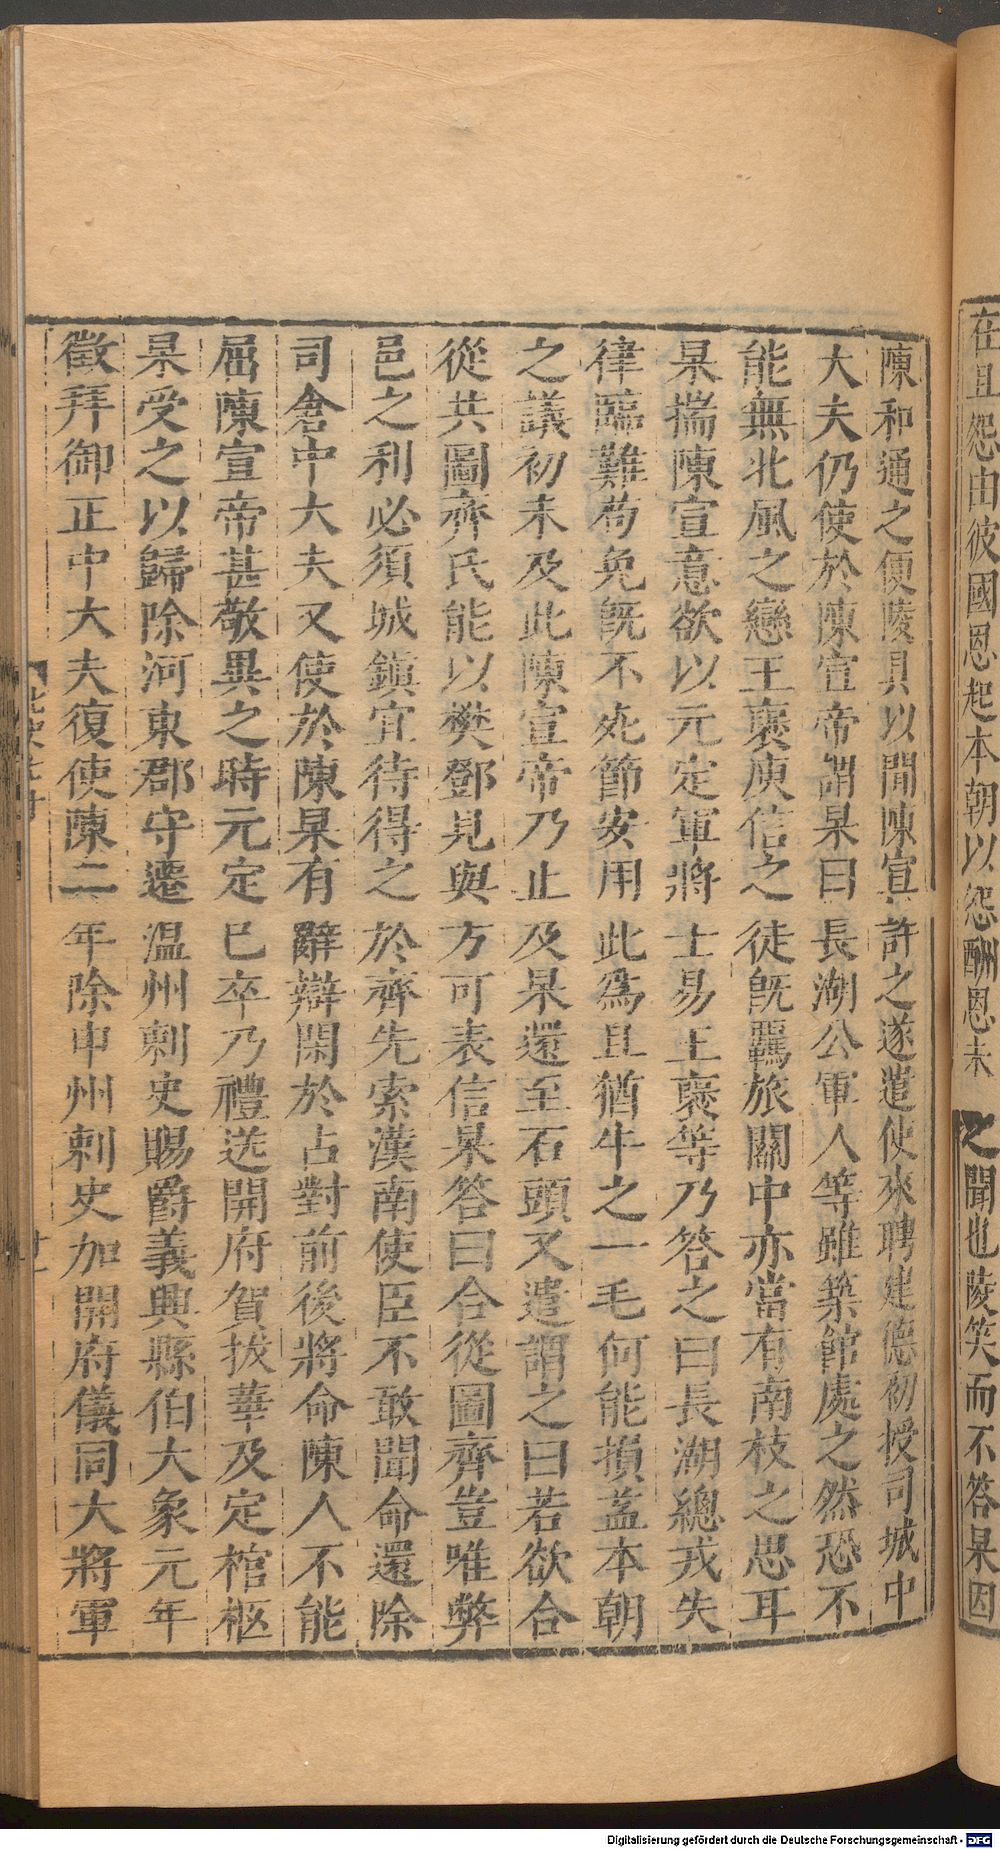 在且怨由彼國恩起本朝以怨酬恩未之聞也陵笑而不答杲因
陳和通之便陵具以聞陳宣許之遂遣使來聘建德初授司城中
大夫仍使於陳宣帝謂杲曰長湖公軍人等雖築館處之然恐不
能無北風之戀王褒庾信之徒旣羈旅關中亦當有南枝之思耳
杲揣陳宣意欲以元定軍將士易王褒等乃答之曰長湖總戎失
律臨難苟免旣不死節安用此爲且猶牛之一毛何能損益本朝
之議初未及此陳宣帝乃止及杲還至石頭又遣謂之曰若欲合
從共圖齊氏能以樊鄧見與方可表信杲答曰合從圖齊豈唯弊
邑之利必須城鎭宜待得之於齊先索漢南使臣不敢聞命還除
司倉中大夫又使於陳杲有辭辯閑於占對前後將命陳人不能
屈陳宣帝甚敬異之時元定已卒乃禮送開府賀拔華及定棺柩
杲受之以歸除河東郡守遷温州刺史賜爵義興縣伯大象元年
徵拜御正中大夫復使陳二年除申州刺史加開府儀同大將軍
Digitalisierung gefördert durch die Deutsche Forschungsgemeinschaft - DFG